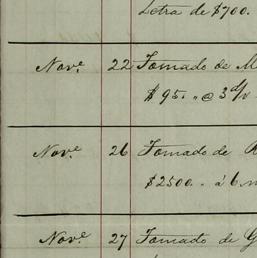 Letra de $700.
Nov.e 22 Tomado de M
$95. " @ 3 d/v
Nov.e 26 Tomado de R
$2500. " á 6 m
Nov.e 27 Tomado de G